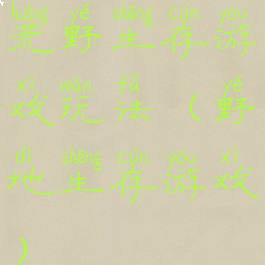 huāng yě shēng cún yóu
荒野生存游
xì wán fǎ yě
戏玩法(野
dì shēng cún yóu xì
地生存游戏
)